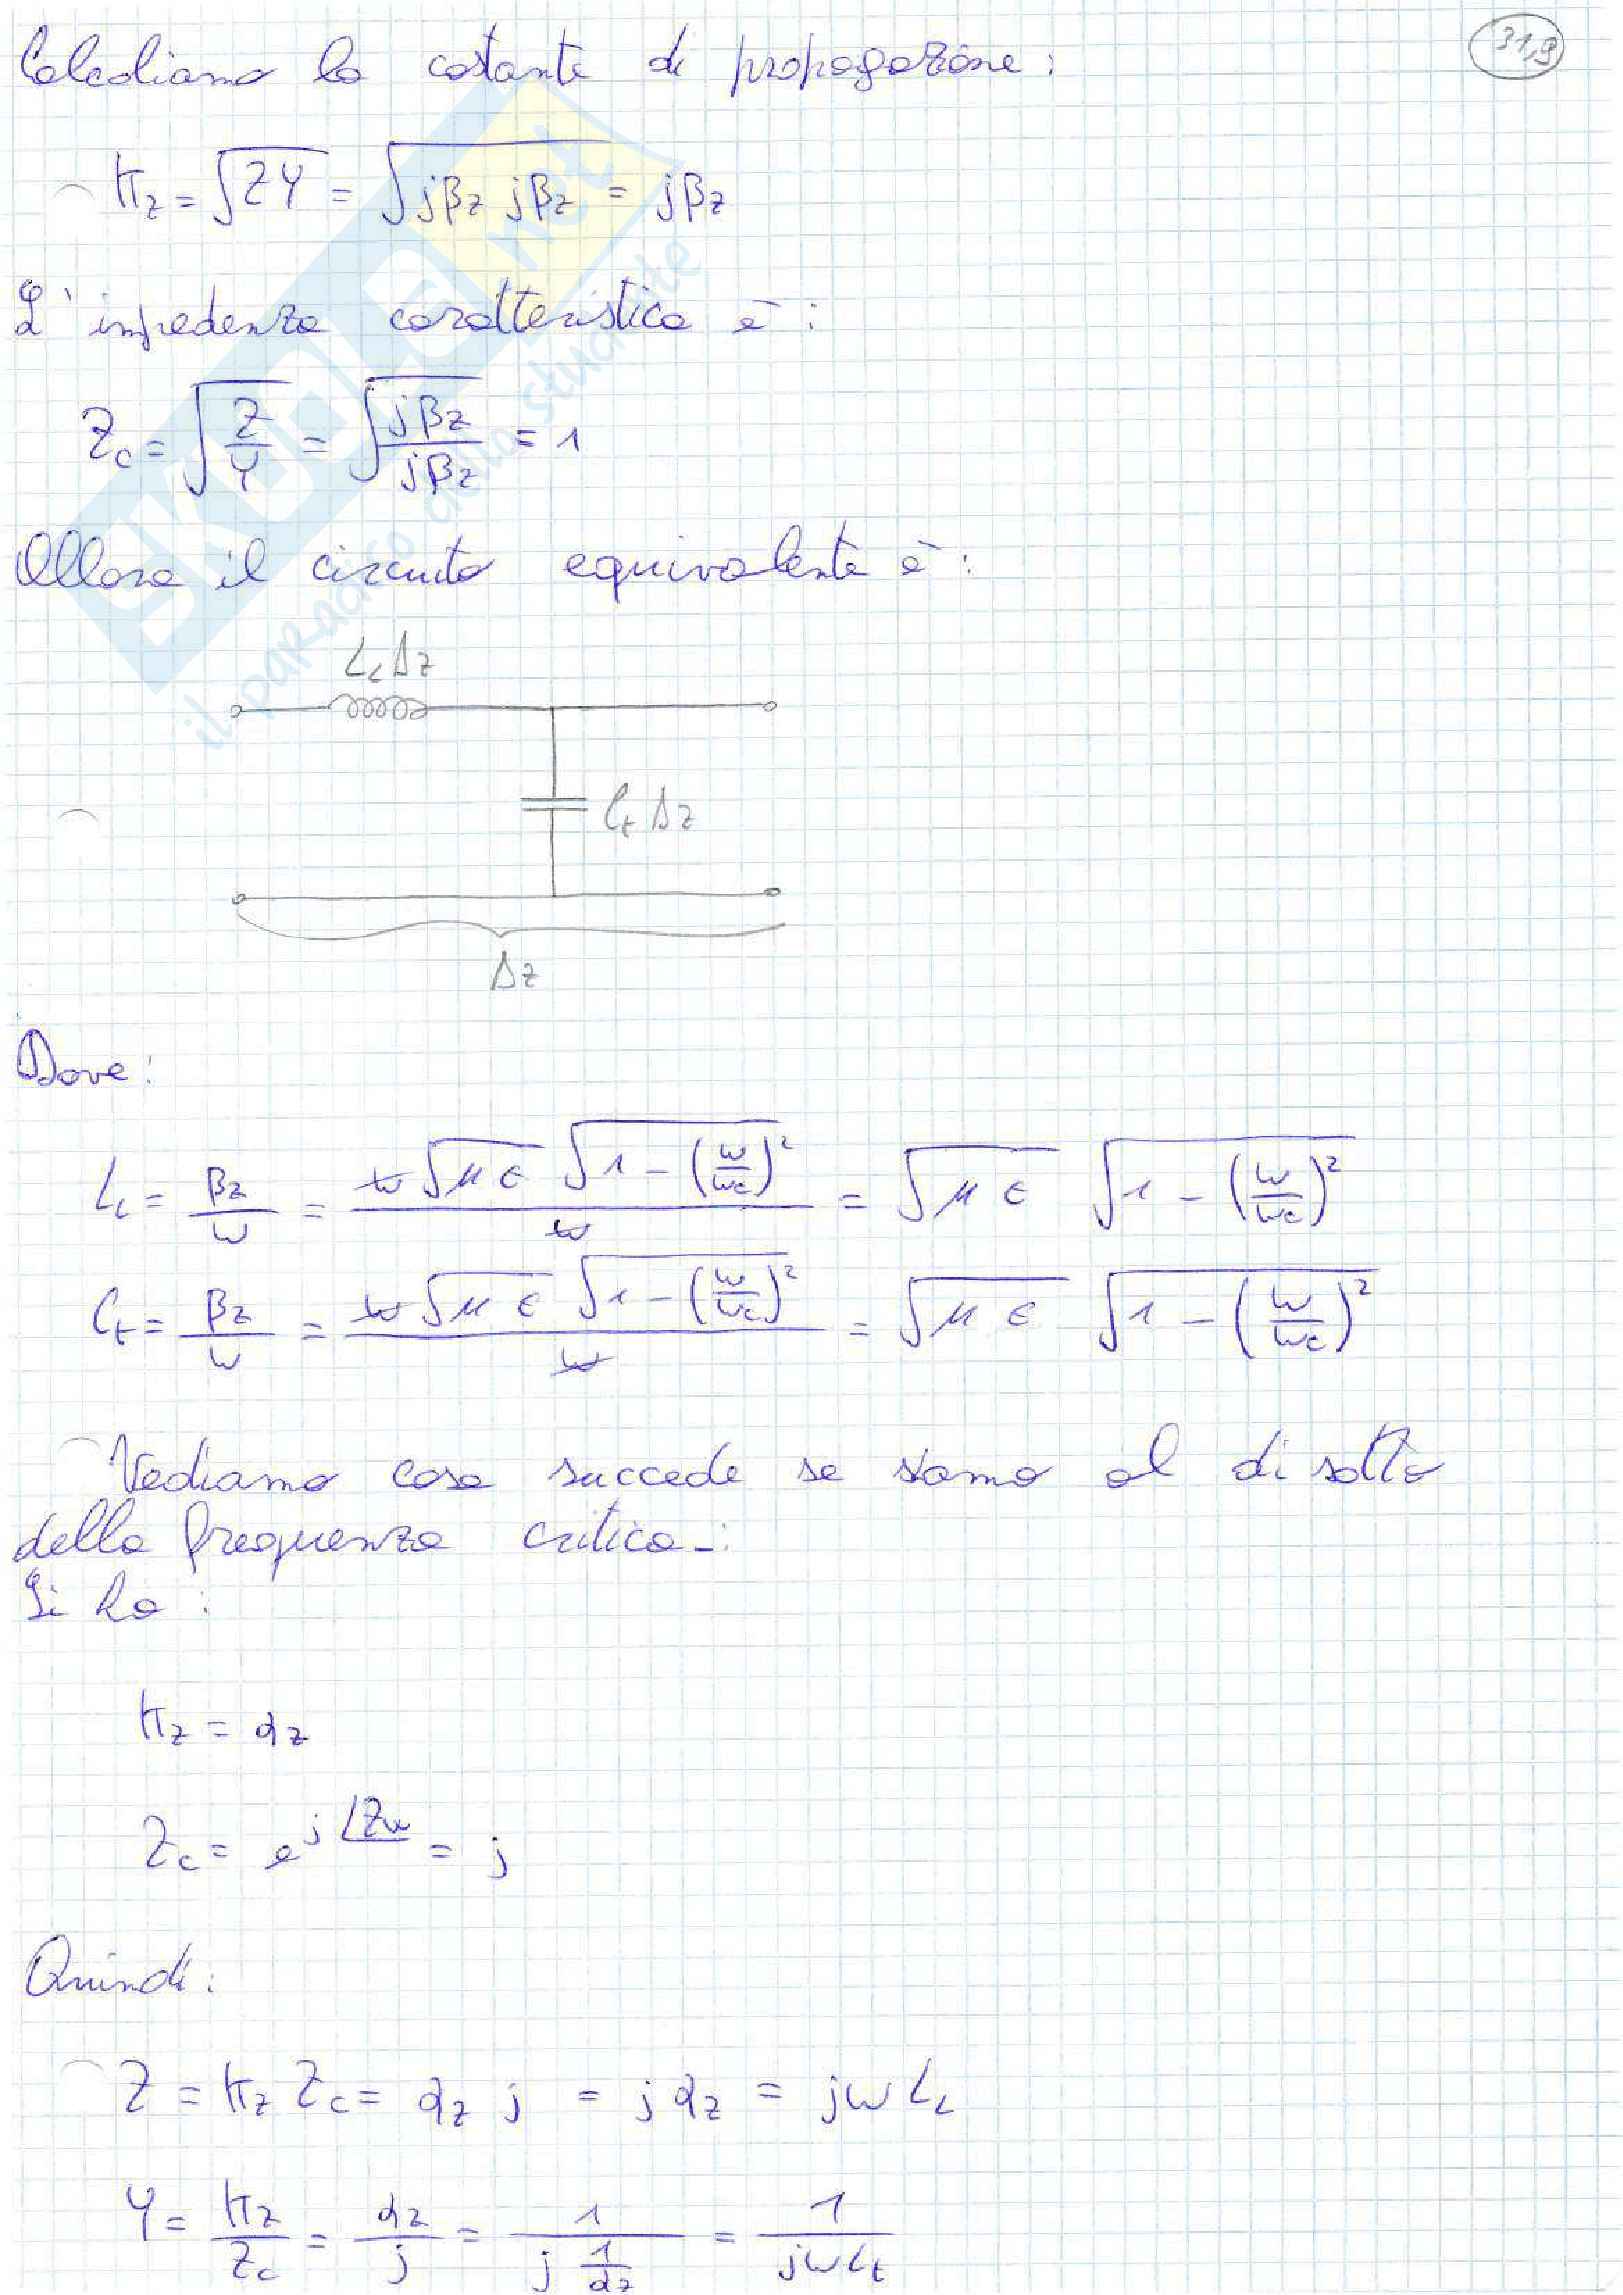 31,9
Calcoliamo la costante di propagazione:
Kz = √ZY = √jβz jβz = jβz
L'impedenza caratteristica è:
Zc = √(Z/Y) = √(jβz/jβz) = 1
Allora il circuito equivalente è:
LL Δz
Ct Δz
Δz
Dove:
LL = βz/ω = ω√με √1-(ω/ωc)² / ω = √με √1-(ω/ωc)²
Ct = βz/ω = ω√με √1-(ω/ωc)² / ω = √με √1-(ω/ωc)²
Vediamo cosa succede se siamo al di sotto
della frequenza critica-:
Si ha:
Kz = αz
Zc = e^j∠Zw = j
Quindi:
Z = Kz Zc = αz j = jαz = jω LL
Y = Kz/Zc = αz/j = 1/(j 1/αz) = 1/(jωLt)
SKUOLA.net
il paradiso dello studente